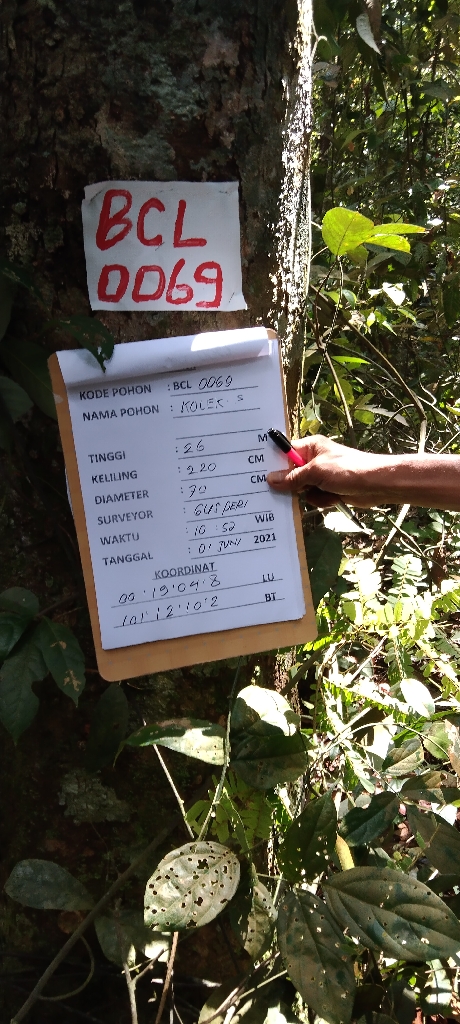 BCL
0069
KODE POHON : BCL 0069
NAMA POHON : KOLEK. S
TINGGI : 26 M
KELILING : 220 CM
DIAMETER : 70 CM
SURVEYOR : GUSPERI
WAKTU : 10:52 WIB
TANGGAL : 01 JUNI 2021
KOORDINAT
00:19:04:8 LU
101:12:10:2 BT